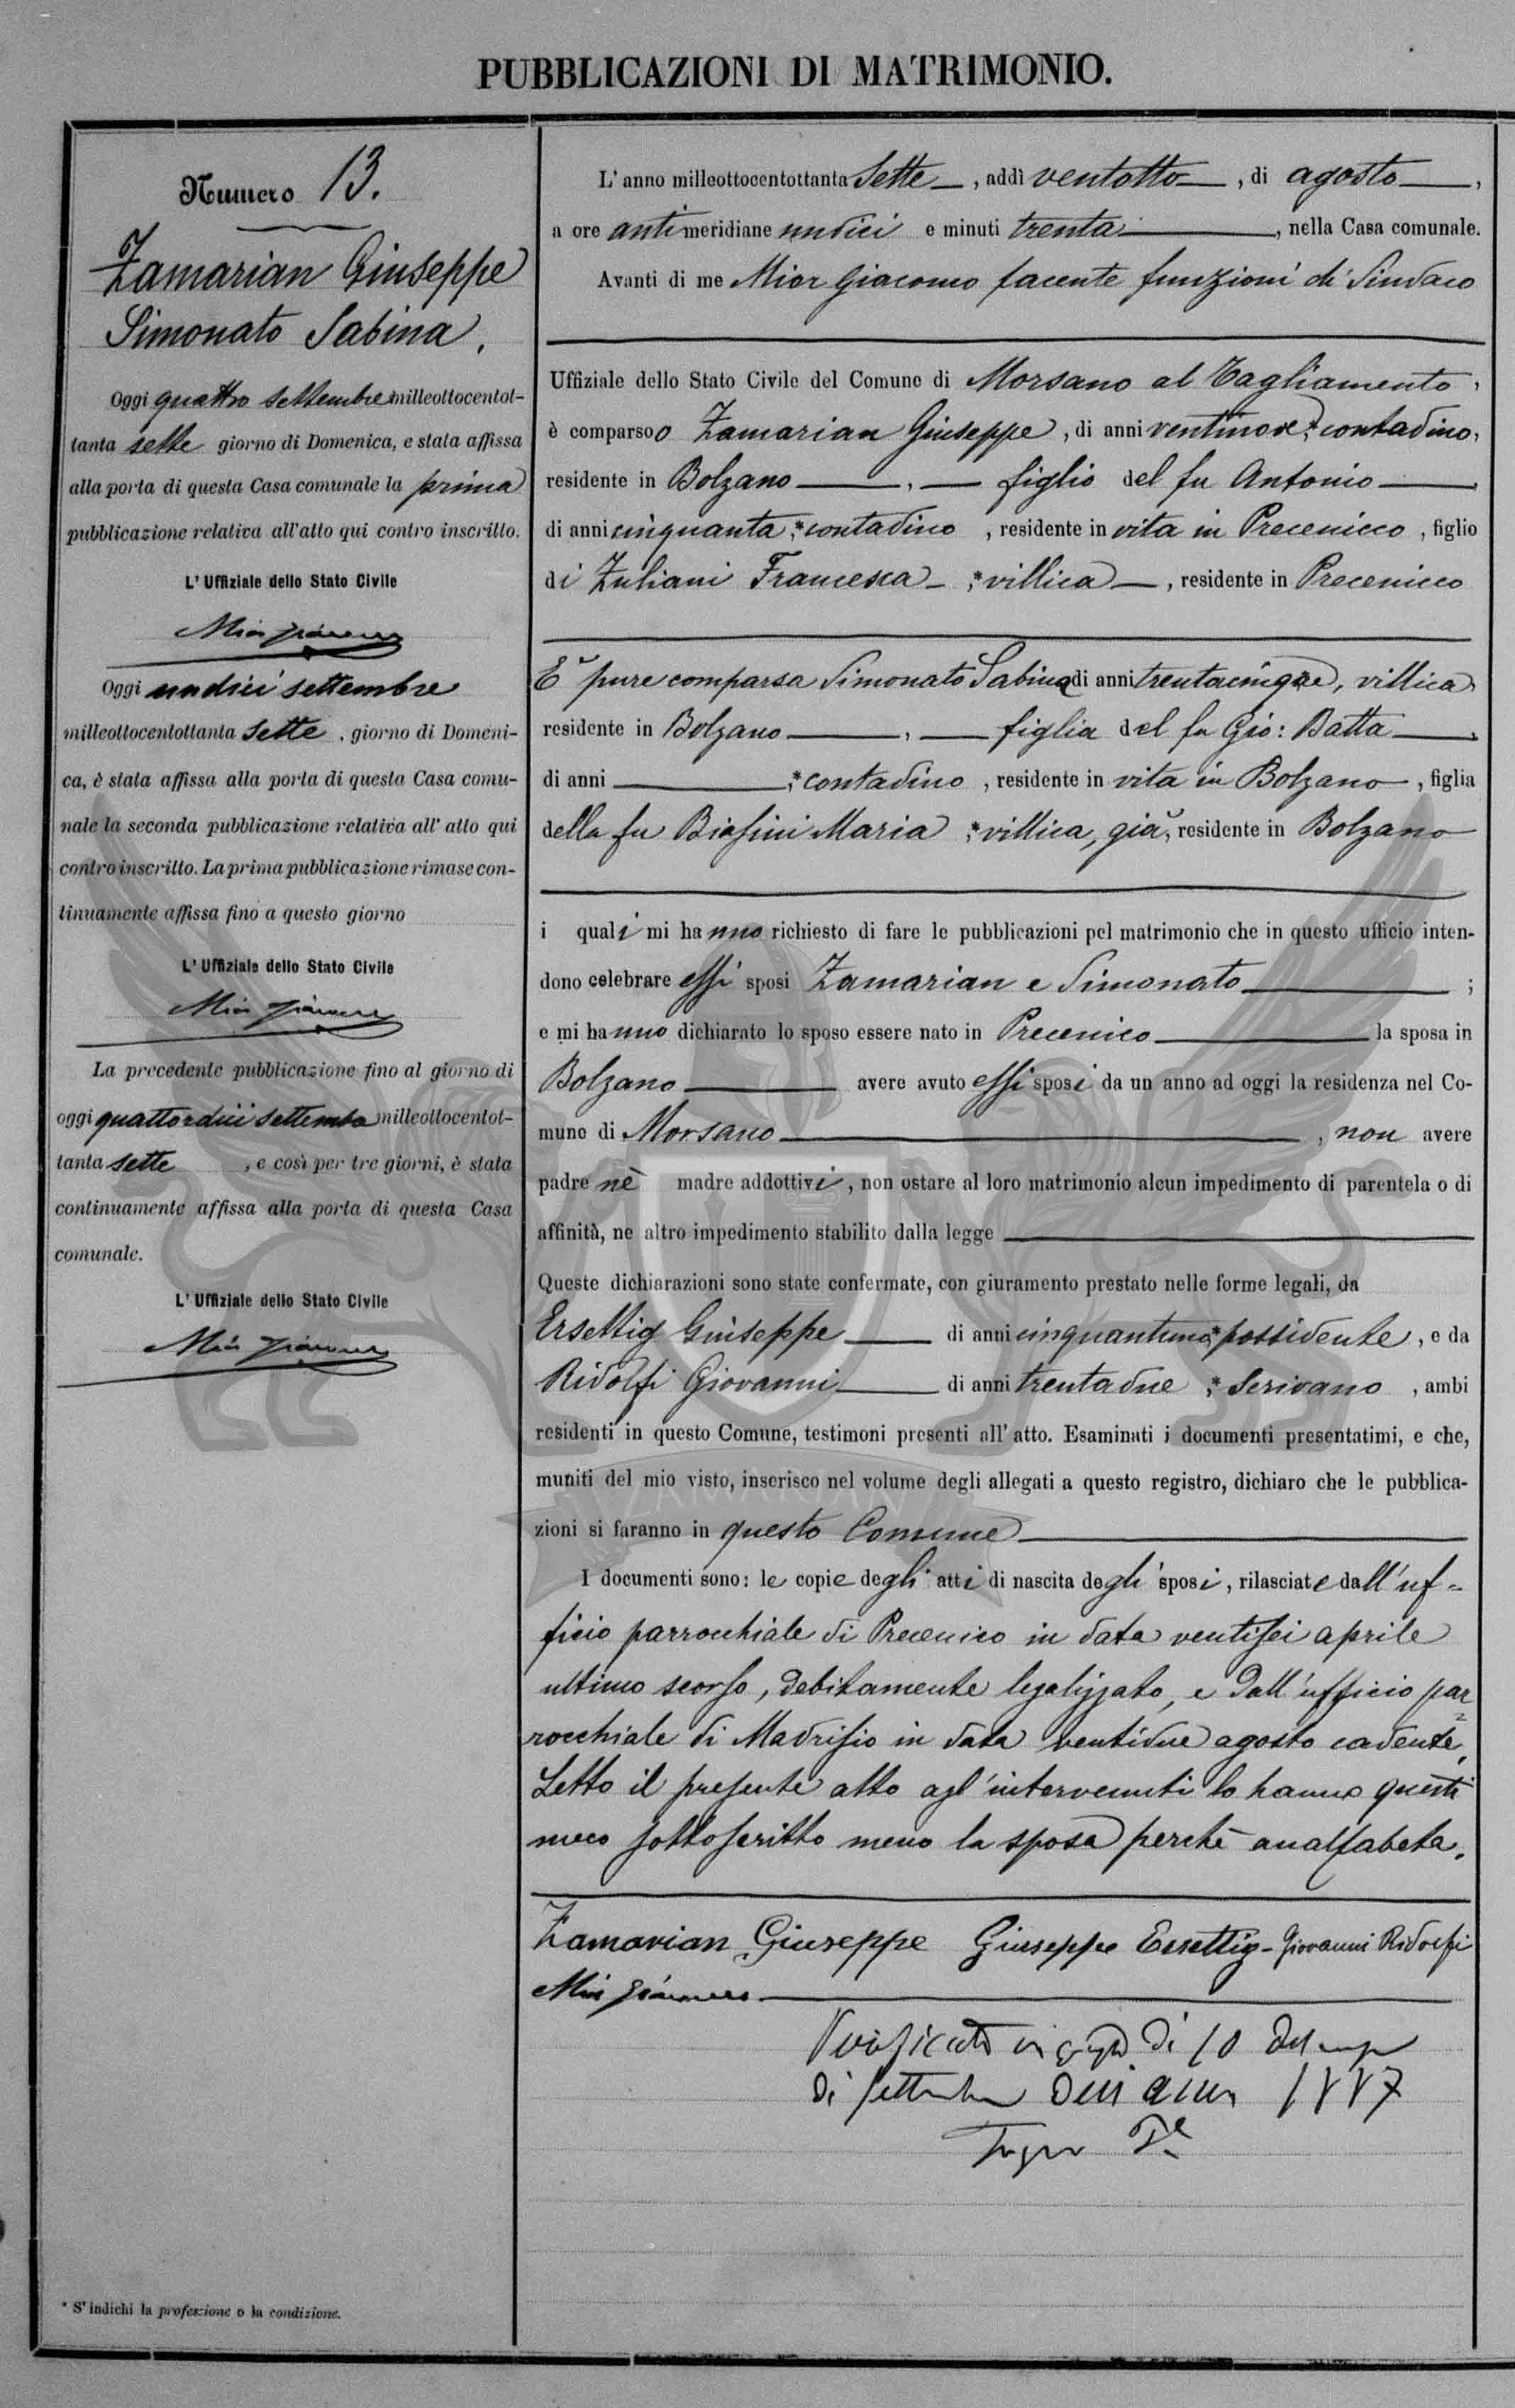 PUBBLICAZIONI DI MATRIMONIO.
Numero 13.
Zamarian Giuseppe
Simonato Sabina.
Oggi quattro settembre milleottocentot-
tanta sette giorno di Domenica, e stata affissa
alla porta di questa Casa comunale la prima
pubblicazione relativa all'atto qui contro inscritto.
L'Uffiziale dello Stato Civile
Mior Giacomo
Oggi undici settembre
milleottocentottanta sette, giorno di Domeni-
ca, è stata affissa alla porta di questa Casa comu-
nale la seconda pubblicazione relativa all'atto qui
contro inscritto. La prima pubblicazione rimase con-
tinuamente affissa fino a questo giorno
L'Uffiziale dello Stato Civile
Mior Giacomo
La precedente pubblicazione fino al giorno di
oggi quattordici settembre milleottocentot-
tanta sette, e così per tre giorni, è stata
continuamente affissa alla porta di questa Casa
comunale.
L'Uffiziale dello Stato Civile
Mior Giacomo
* S'indichi la professione o la condizione.
L'anno milleottocentottanta sette, addì ventotto, di agosto,
a ore antimeridiane undici e minuti trenta, nella Casa comunale.
Avanti di me Mior Giacomo facente funzioni di Sindaco
Uffiziale dello Stato Civile del Comune di Morsano al Tagliamento,
è comparso Zamarian Giuseppe, di anni ventinove,* contadino,
residente in Bolzano, figlio del fu Antonio,
di anni cinquanta,* contadino, residente in vita in Precenicco, figlio
di Zuliani Francesca,* villica, residente in Precenicco
E' pure comparsa Simonato Sabina di anni trentacinque, villica
residente in Bolzano, figlia del fu Gio: Batta,
di anni ,* contadino, residente in vita in Bolzano, figlia
della fu Biasini Maria,* villica, già, residente in Bolzano
i quali mi hanno richiesto di fare le pubblicazioni pel matrimonio che in questo ufficio inten-
dono celebrare essi sposi Zamarian e Simonato;
e mi hanno dichiarato lo sposo essere nato in Precenico la sposa in
Bolzano avere avuto essi sposi da un anno ad oggi la residenza nel Co-
mune di Morsano, non avere
padre nè madre addottivi, non ostare al loro matrimonio alcun impedimento di parentela o di
affinità, ne altro impedimento stabilito dalla legge
Queste dichiarazioni sono state confermate, con giuramento prestato nelle forme legali, da
Ersettig Giuseppe di anni cinquantuno,* possidente, e da
Ridolfi Giovanni di anni trentadue,* Scrivano, ambi
residenti in questo Comune, testimoni presenti all'atto. Esaminati i documenti presentatimi, e che,
muniti del mio visto, inserisco nel volume degli allegati a questo registro, dichiaro che le pubblica-
zioni si faranno in questo Comune
I documenti sono: le copie degli atti di nascita degli sposi, rilasciate dall'uf-
ficio parrocchiale di Precenico in data ventisei aprile
ultimo scorso, debitamente legalizzato, e dall'ufficio par
rocchiale di Madrisio in data ventidue agosto cadente.
Letto il presente atto agl'intervenuti lo hanno questi
meco sottoscritto meno la sposa perchè analfabeta.
Zamarian Giuseppe Giuseppe Ersettig - Giovanni Ridolfi
Mior Giacomo
Verificato di 10 del
di settembre 1887